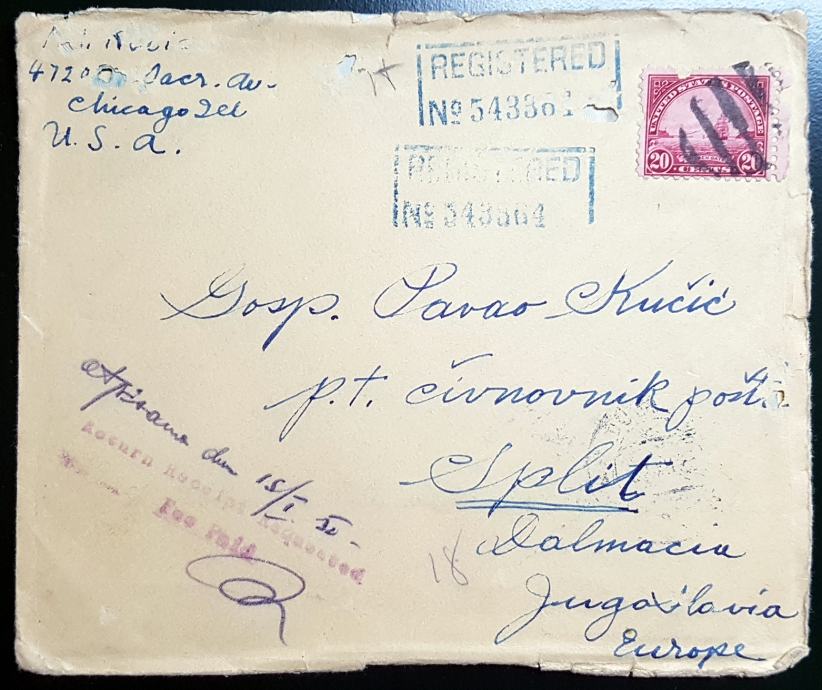 4720 So. Sacr. Av-
Chicago Ill
U. S. A.
REGISTERED
No 543364
REGISTERED
No 543364
UNITED STATES POSTAGE
GOLDEN GATE
20 20
CENTS
Gosp. Pavao Kučić
p.t. čivnovnik pošt.
Split
Dalmacia
Jugoslavia
Europe
15/I
Return Receipt Requested
Fee Paid
18